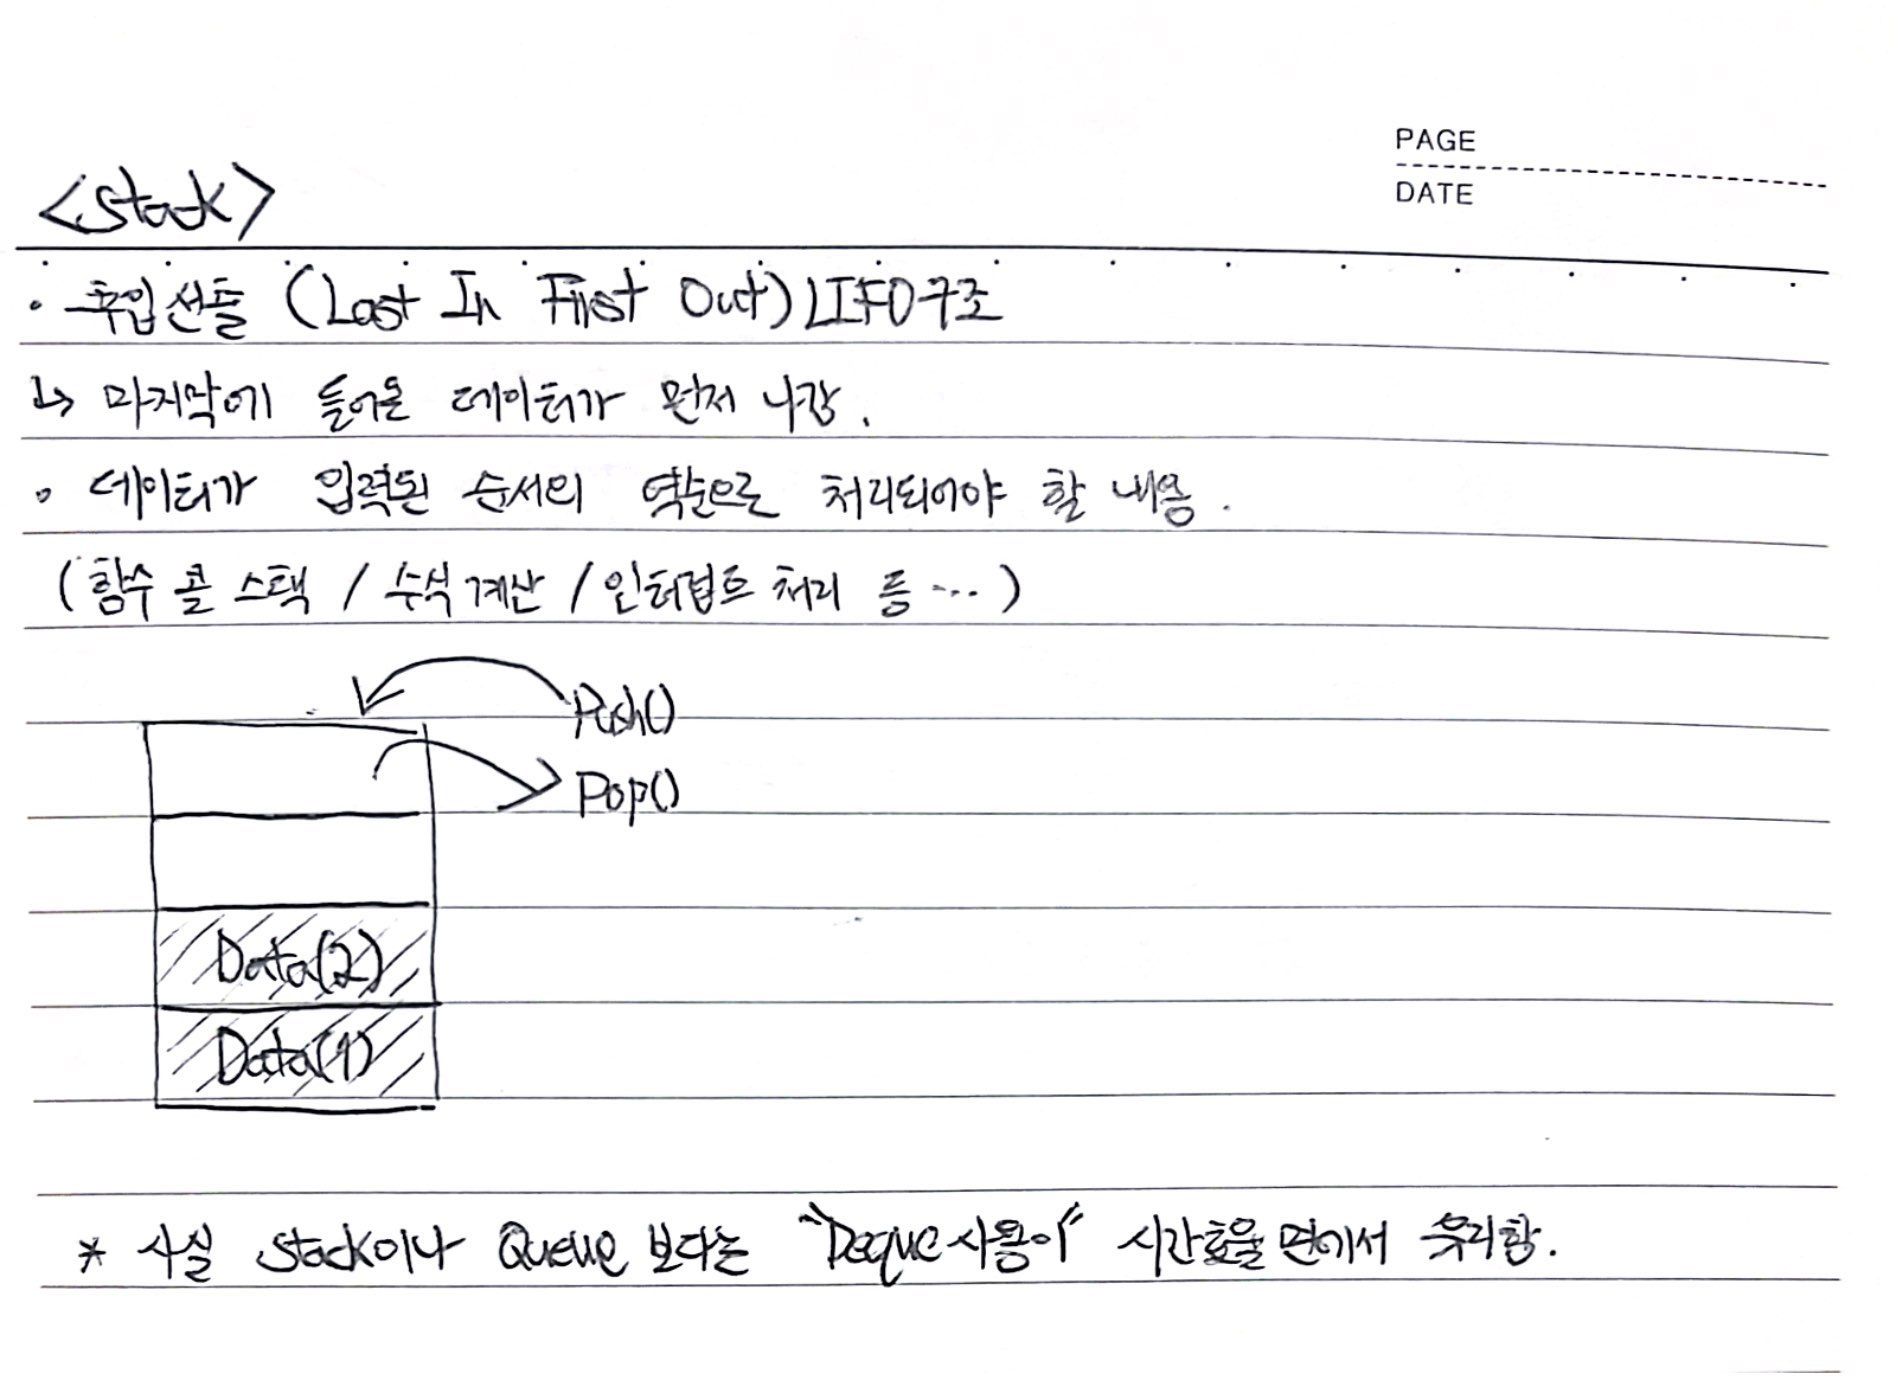 PAGE
DATE
<Stack>
· 후입선출 (Last In First Out) LIFO구조
↳ 마지막에 들어온 데이터가 먼저 나감.
· 데이터가 입력된 순서의 역순으로 처리되어야 할 내용.
(함수 콜 스택 / 수식계산 / 인터럽트 처리 등 ...)
Push()
Pop()
Data(2)
Data(1)
* 사실 Stack이나 Queue 보다는 "Deque 사용이" 시간효율 면에서 유리함.